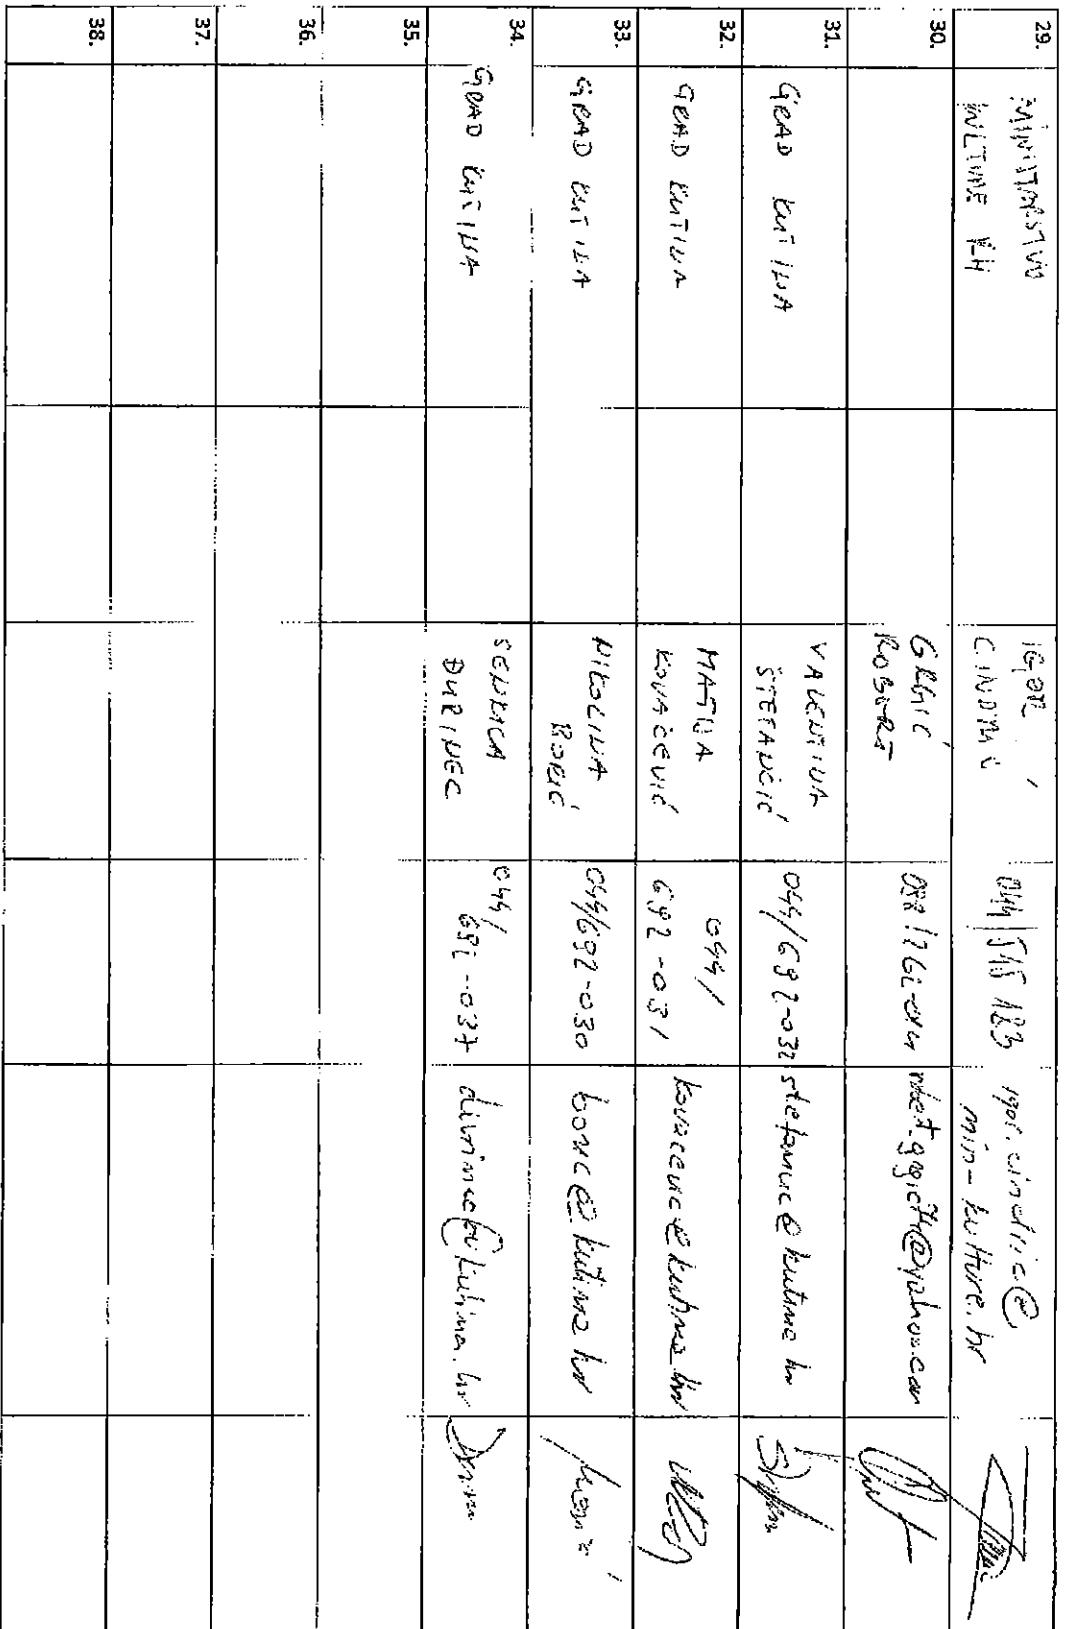 29.
MINISTARSTVO
KULTURE RH
IGOR
CINDRIĆ
044/515 123
igor.cindric@
min-kulture.hr
30.
GRGIĆ
ROBERT
31.
GRAD KUTINA
VALENTINA
ŠTEFANČIĆ
044/692-032
stefancic@kutina.hr
32.
GRAD KUTINA
MATIJA
KOVAČEVIĆ
044/
692-031
kovacevic@kutina.hr
33.
GRAD KUTINA
NIKOLINA
BORIĆ
044/692-030
boric@kutina.hr
34.
GRAD KUTINA
SENKICA
ĐURINEC
044/
692-037
35.
36.
37.
38.